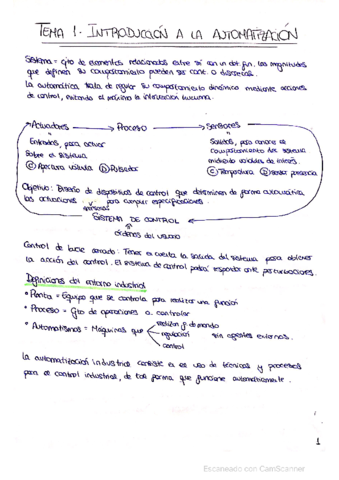 TEMA 1. INTRODUCCIÓN A LA AUTOMATIZACIÓN
Sistema = Cjto de elementos relacionados entre sí con un det. fin. Las magnitudes
que definen su comportamiento pueden ser cont. o discretas.
La automática trata de regular su comportamiento dinámico mediante acciones
de control, evitando al máximo la intervención humana.
Actuadores Proceso Sensores
Entradas, para actuar
sobre el sistema
Ⓒ Apertura válvula Ⓓ Pulsador
Salidas, para conocer el
comportamiento del sistema
midiendo variables de interés.
Ⓒ Temperatura Ⓓ Sensor presencia
Objetivo: Diseño de dispositivos de control que determinen de forma automática
las actuaciones para cumplir especificaciones.
SISTEMA DE CONTROL
órdenes del usuario
Control de bucle cerrado: Tener en cuenta la salida del sistema para obtener
la acción del control. El sistema de control podrá responder ante perturbaciones.
Definiciones del entorno industrial
• Planta = Equipo que se controla para realizar una función
• Proceso = Cjto de operaciones a controlar
• Automatismos = Máquinas que realizan mando
regulación sin agentes externos.
control
La automatización industrial consiste en el uso de técnicas y procesos
para el control industrial, de tal forma que funcione automáticamente.
1
Escaneado con CamScanner